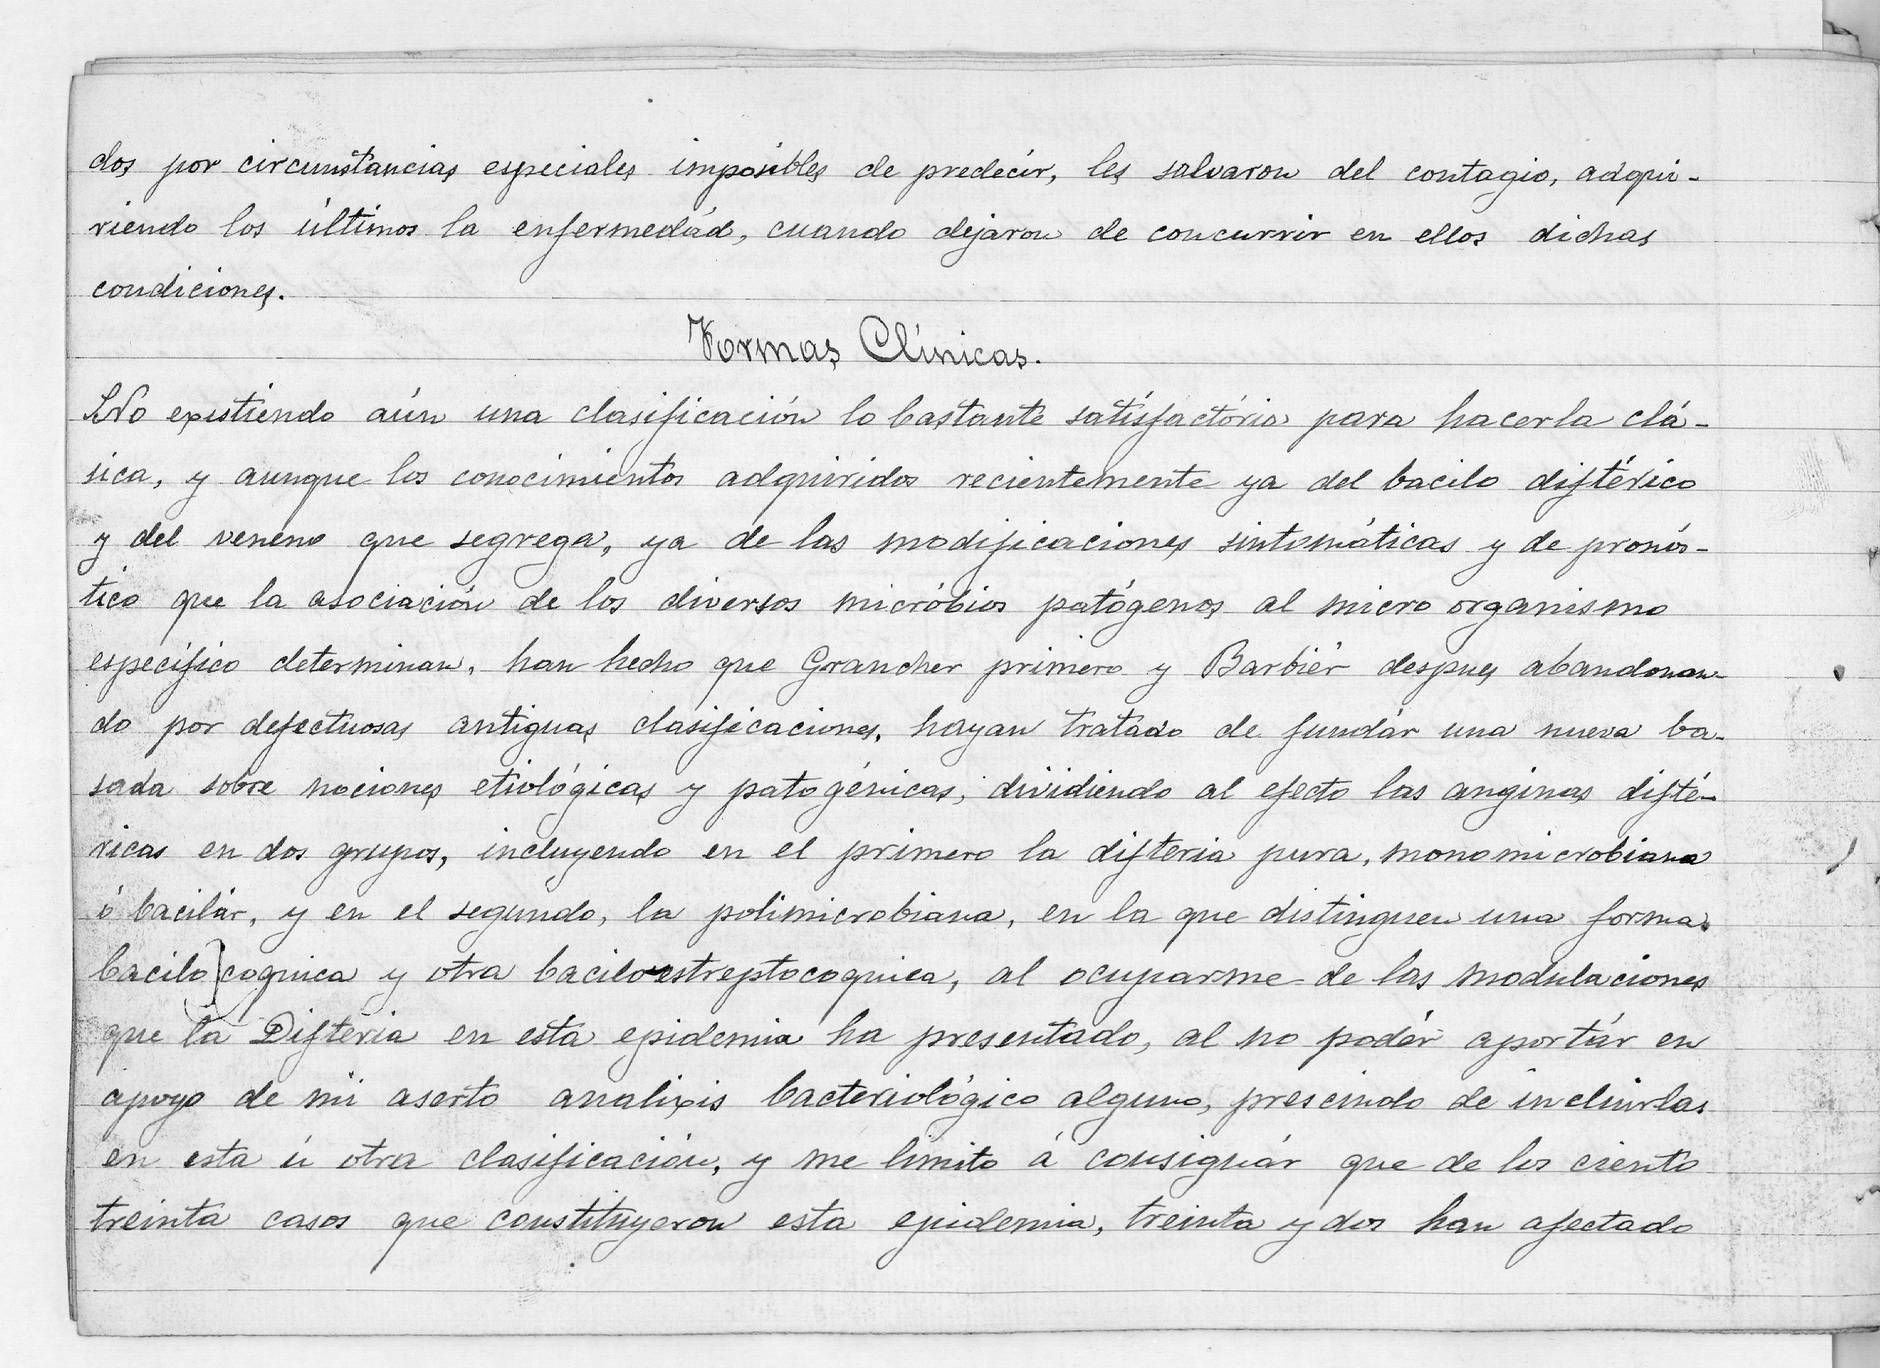 dos por circunstancias especiales imposibles de predecír, les salvaron del contagio, adqui-
riendo los últimos la enfermedád, cuando dejáron de concurrir en ellos dichas
condiciones.
Formas Clínicas.
No existiendo aún una clasificación lo bastante satisfactória para hacerla clá-
sica, y aunque los conocimientos adquiridos recientemente ya del bacilo diftérico
y del veneno que segrega, ya de las modificaciones sintomáticas y de pronós-
tico que la asociación de los diversos micróbios patógenos al micro organismo
específico determinan, han hecho que Grancher primero y Barbiér despues abandonan-
do por defectuosas antiguas clasificaciones, hayan tratado de fundár una nueva ba-
sada sobre nociones etiológicas y patogénicas, dividiendo al efecto las anginas difté-
ricas en dos grupos, incluyendo en el primero la difteria pura, monomicrobiana
ó bacilár, y en el segundo, la polimicrobiana, en la que distinguen una forma
bacilo coquica y otra bacilo estreptocoquica, al ocuparme de las modulaciones
que la Difteria en esta epidemia ha presentado, al no podér aportár en
apoyo de mi aserto analixis bacteriológico alguno, prescindo de incluirlas
en esta ú otra clasificación, y me limito á consignár que de los ciento
treinta casos que constituyeron esta epidemia, treinta y dos han afectado